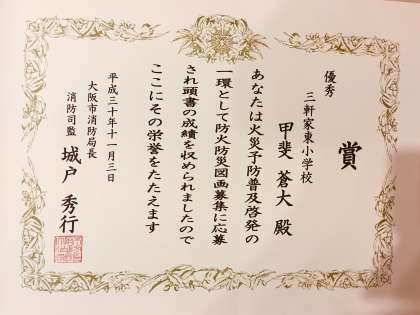 賞
優秀
三軒家東小学校
甲斐 蒼大 殿
あなたは火災予防普及啓発の
一環として防火防災図画募集に応募
され頭書の成績を収められましたので
ここにその栄誉をたたえます
平成三十年十一月三日
大阪市消防局長
消防司監 城戸 秀行